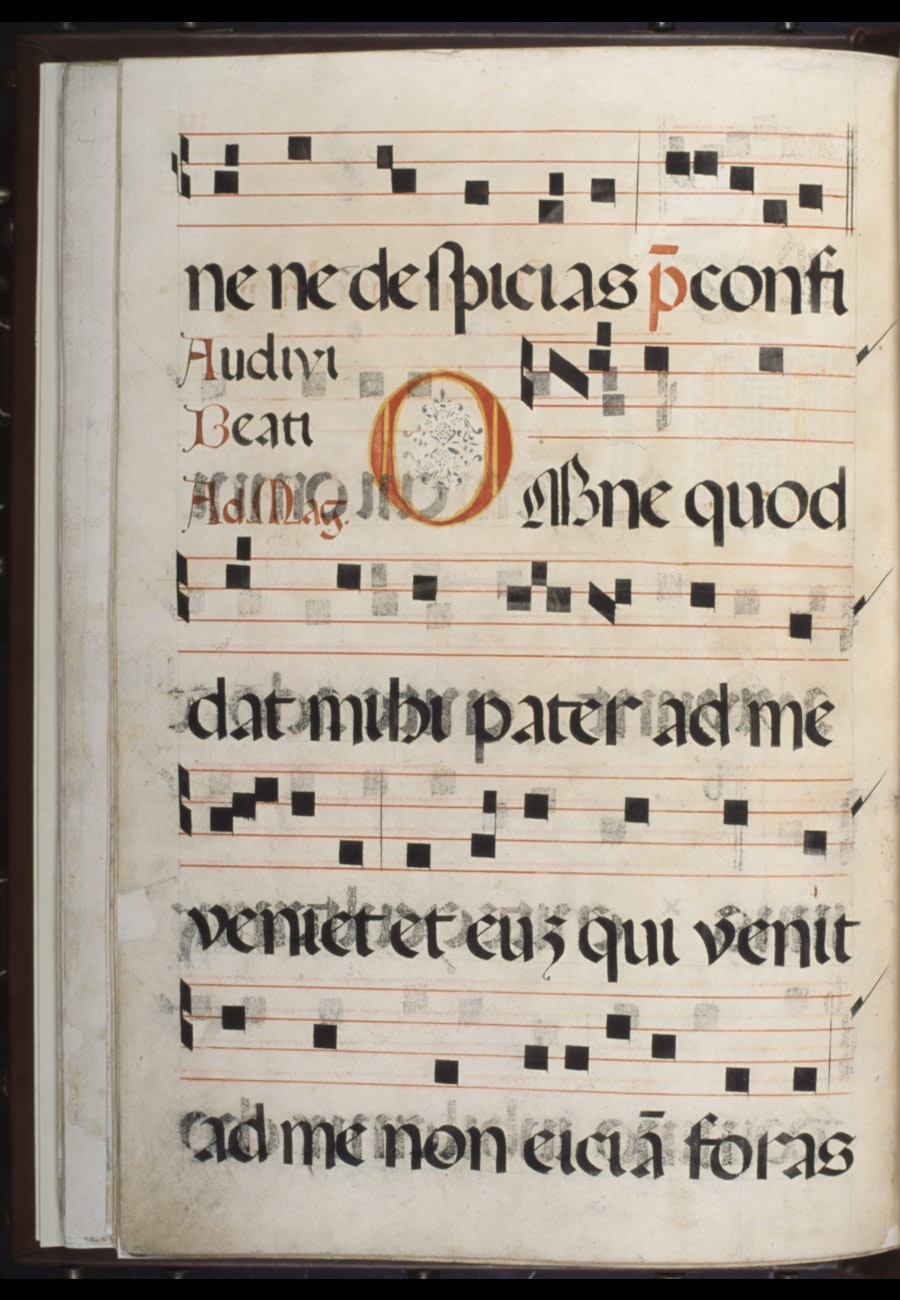 ne ne despicias p̄ confi
Audivi
Beati
Ad Mag.
OMne quod
dat mihi pater ad me
veniet et euʒ qui venit
ad me non eiciā foras